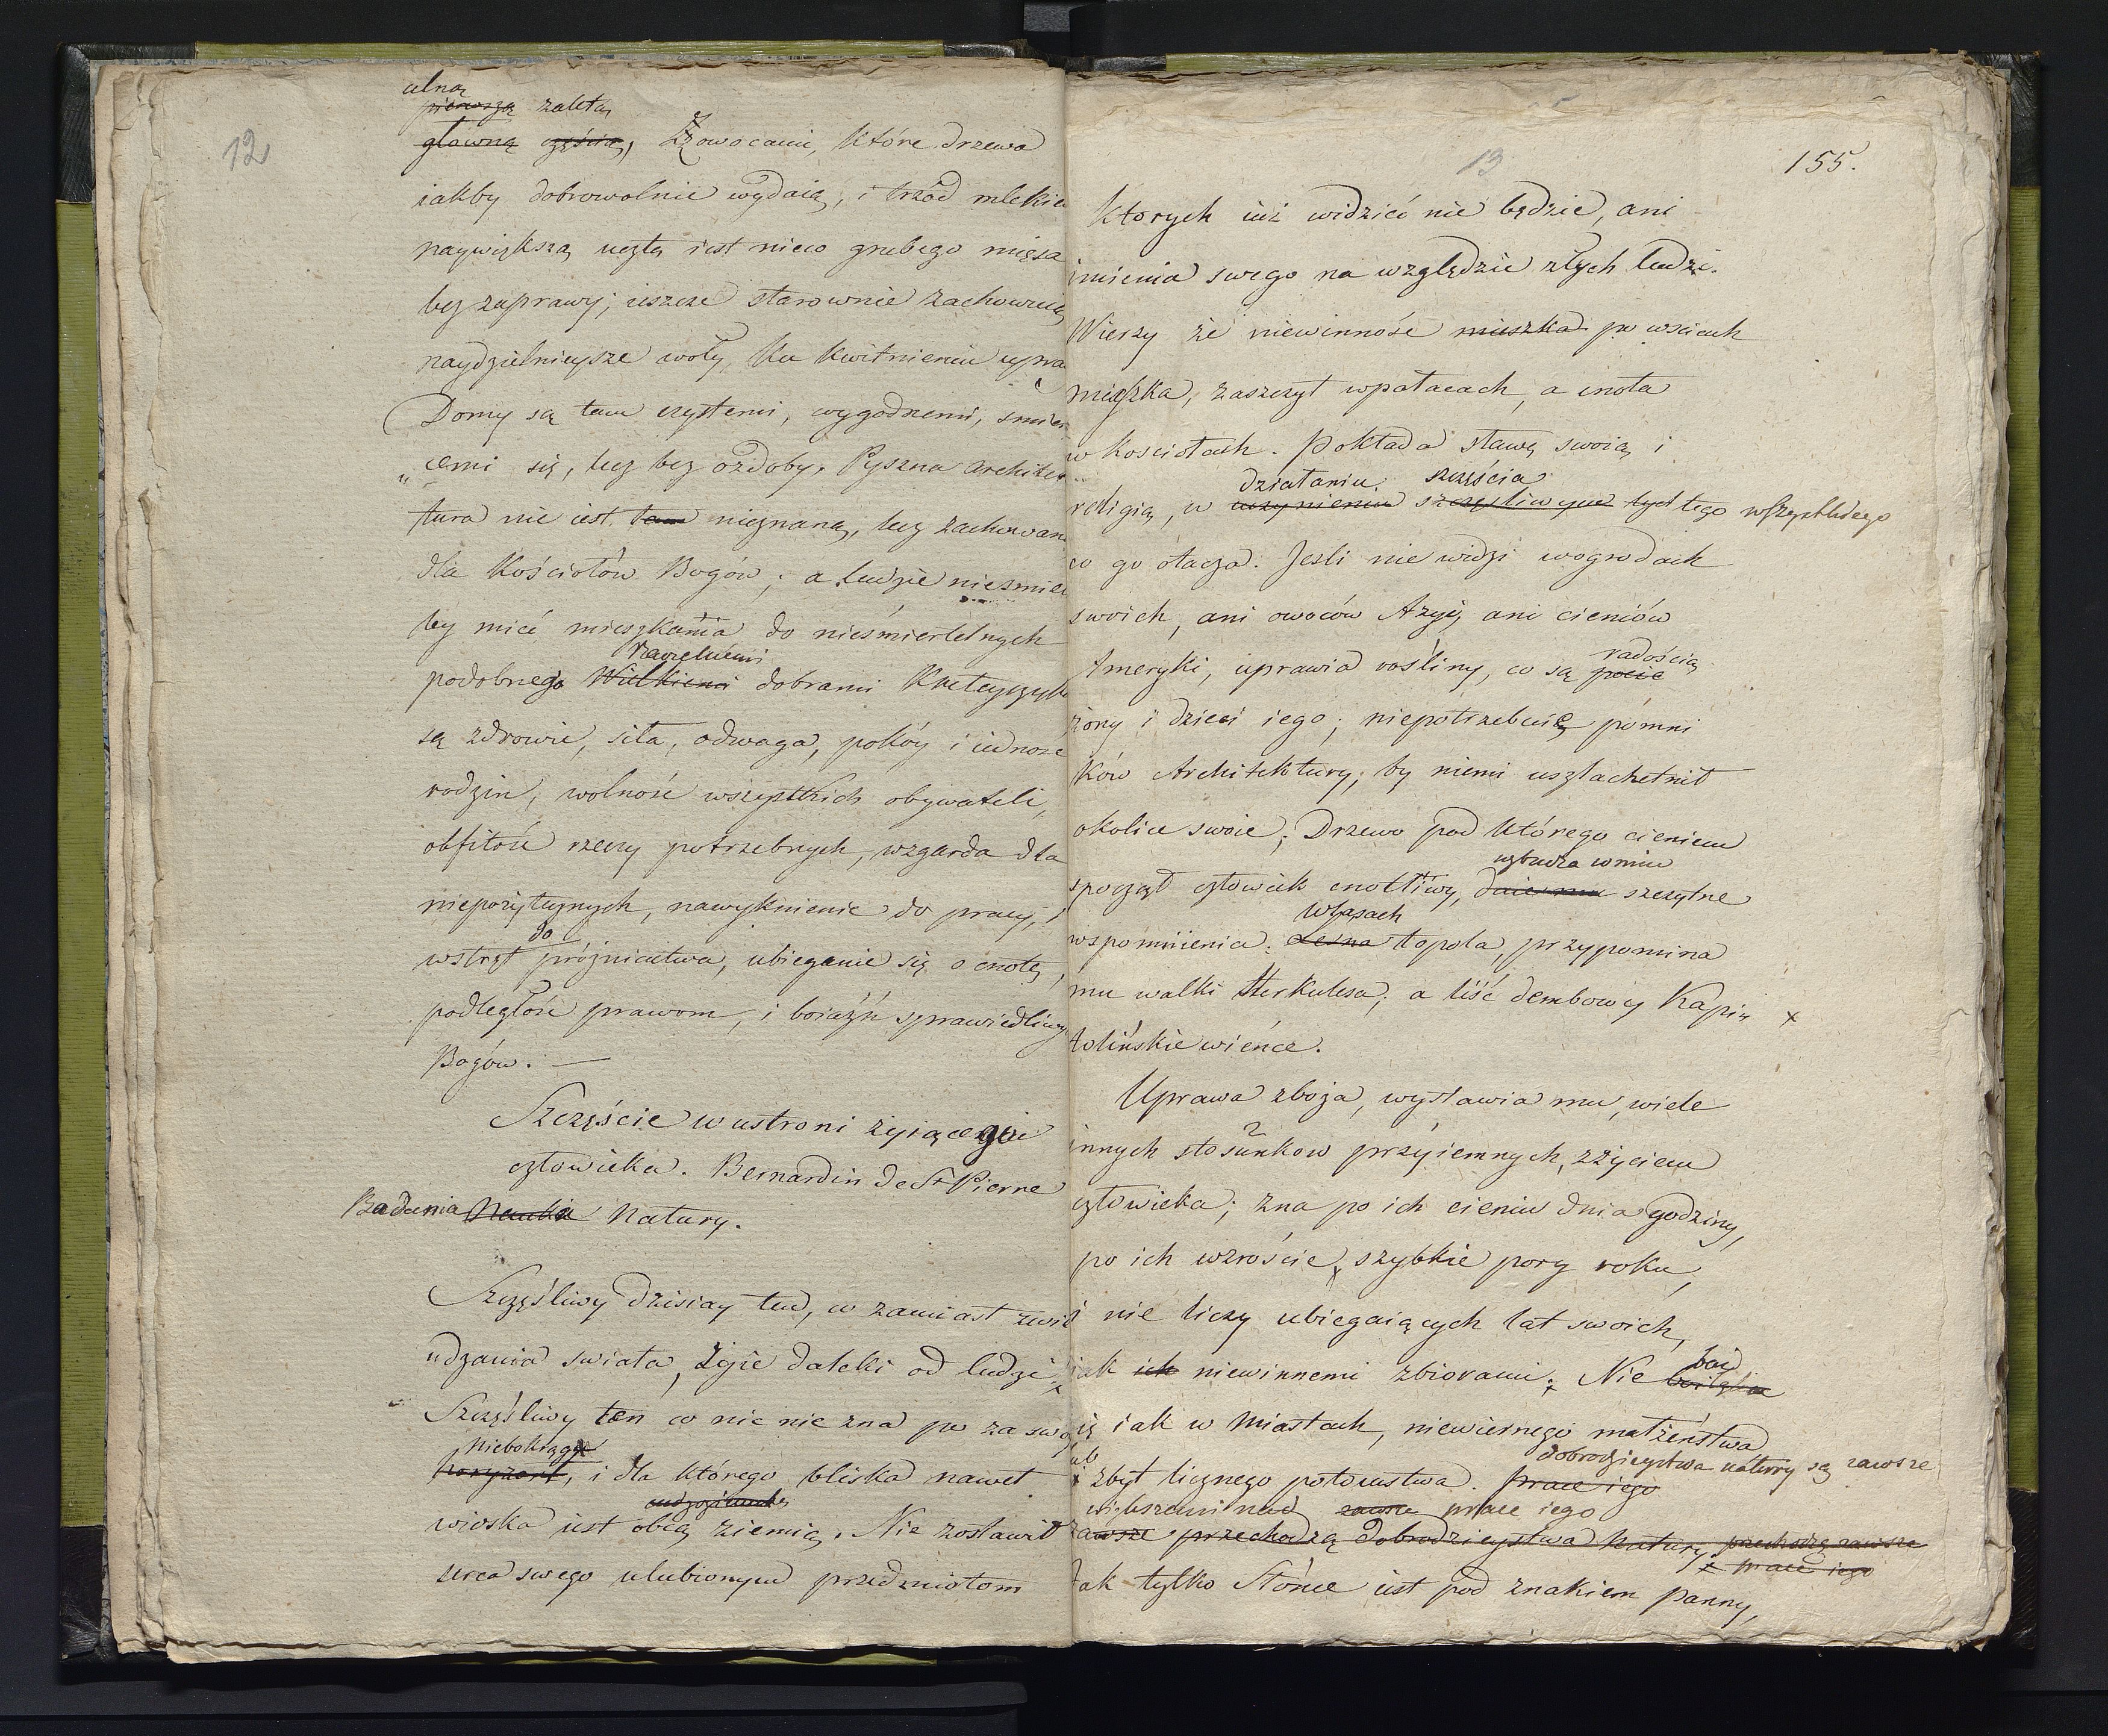 12
ulną
pierwszą zaletą
główną częścią, Z owocami, które drzewa
iakby dobrowolnie wydaią, i trzód mlekiem
naywiększą ucztą iest nieco grubego mięsa
bez zaprawy; ieszcze starownie zachowuią
naydzielnieysze woły, ku kwitnieniu upra
Domy są tam czystemi, wygodnemi, smieią
„cemi się, lecz bez ozdoby. Pyszna Architek
tura nie iest tam nieznaną, lecz zachowaną
dla Kościołów Bogów; a ludzie nieśmieli
by mieć mieszkania do nieśmiertelnych
rzetelnemi
podobnego Wielkiemi dobrami Kreteyczyków
są zdrowie, siła, odwaga, pokóy i iedność
rodzin, wolność wszystkich obywateli,
obfitość rzeczy potrzebnych, wzgarda dla
niepożytecznych, nawyknienie do pracy, i
do
wstręt próżniactwa, ubieganie się o cnotę,
podległość prawom, i boiaźń sprawiedliwych
Bogów. —
Szczęście w ustroni żyiącego
człowieka. Bernardin de St Pierre
Badania Nauka Natury.
Szczęśliwy dzisiay ten, co zamiast zwie
udzania swiata, żyie daleki od ludzi
Szczęśliwy ten co nic nie zna po za swoy
niebokrąg
horyzont, i dla którego bliska nawet
cudzoziemską
wioska iest obcą ziemią. Nie zostawił
serca swego ulubionym przedmiotom
13
155.
których iuż widzieć nie będzie, ani
imienia swego na względzie złych ludzi.
Wierzy że niewinność mieszka po wsiach
mieszka, zaszczyt w pałacach, a cnota
w kosciołach. Pokłada sławę swoią i
działaniu szczęścia
religią, w uczynieniu szczęśliwym tych tego wszystkiego
co go otacza. Jeśli nie widzi w ogrodach
swoich, ani owoców Azyi, ani cieniów
radością
Ameryki, uprawia rośliny, co są
żony i dzieci iego; niepotrzebuie pomni
ków Architektury, by niemi uszlachetnił
okolice swoie; Drzewo pod którego cieniem
wzbudza w nim
spoczął człowiek cnotliwy, szczytne
wspomnienia. Leśna topola, przypomina
mu walki Herkulesa; a liść dembowy Kapi„ x
tolińskie wieńce.
Uprawa zboża, wystawia mu, wiele
innych stosunkow przyiemnych, z życiem
człowieka; zna po ich cieniu dnia godziny,
po ich wzroście, szybkie pory roku,
i nie liczy ubiegaiących lat swoich,
iak ich niewinnemi zbiorami. Nie boi
ię iak w Miastach, niewiernego małżeństwa
lub dobrodzieystwa natury są zawsze
i zbyt licznego potomstwa. prace iego
większemi nad prace iego
zawsze przechodzą dobrodzieystwa natury przechodzą zawsze
x prace iego
Jak tylko Słońce iest pod znakiem Panny,